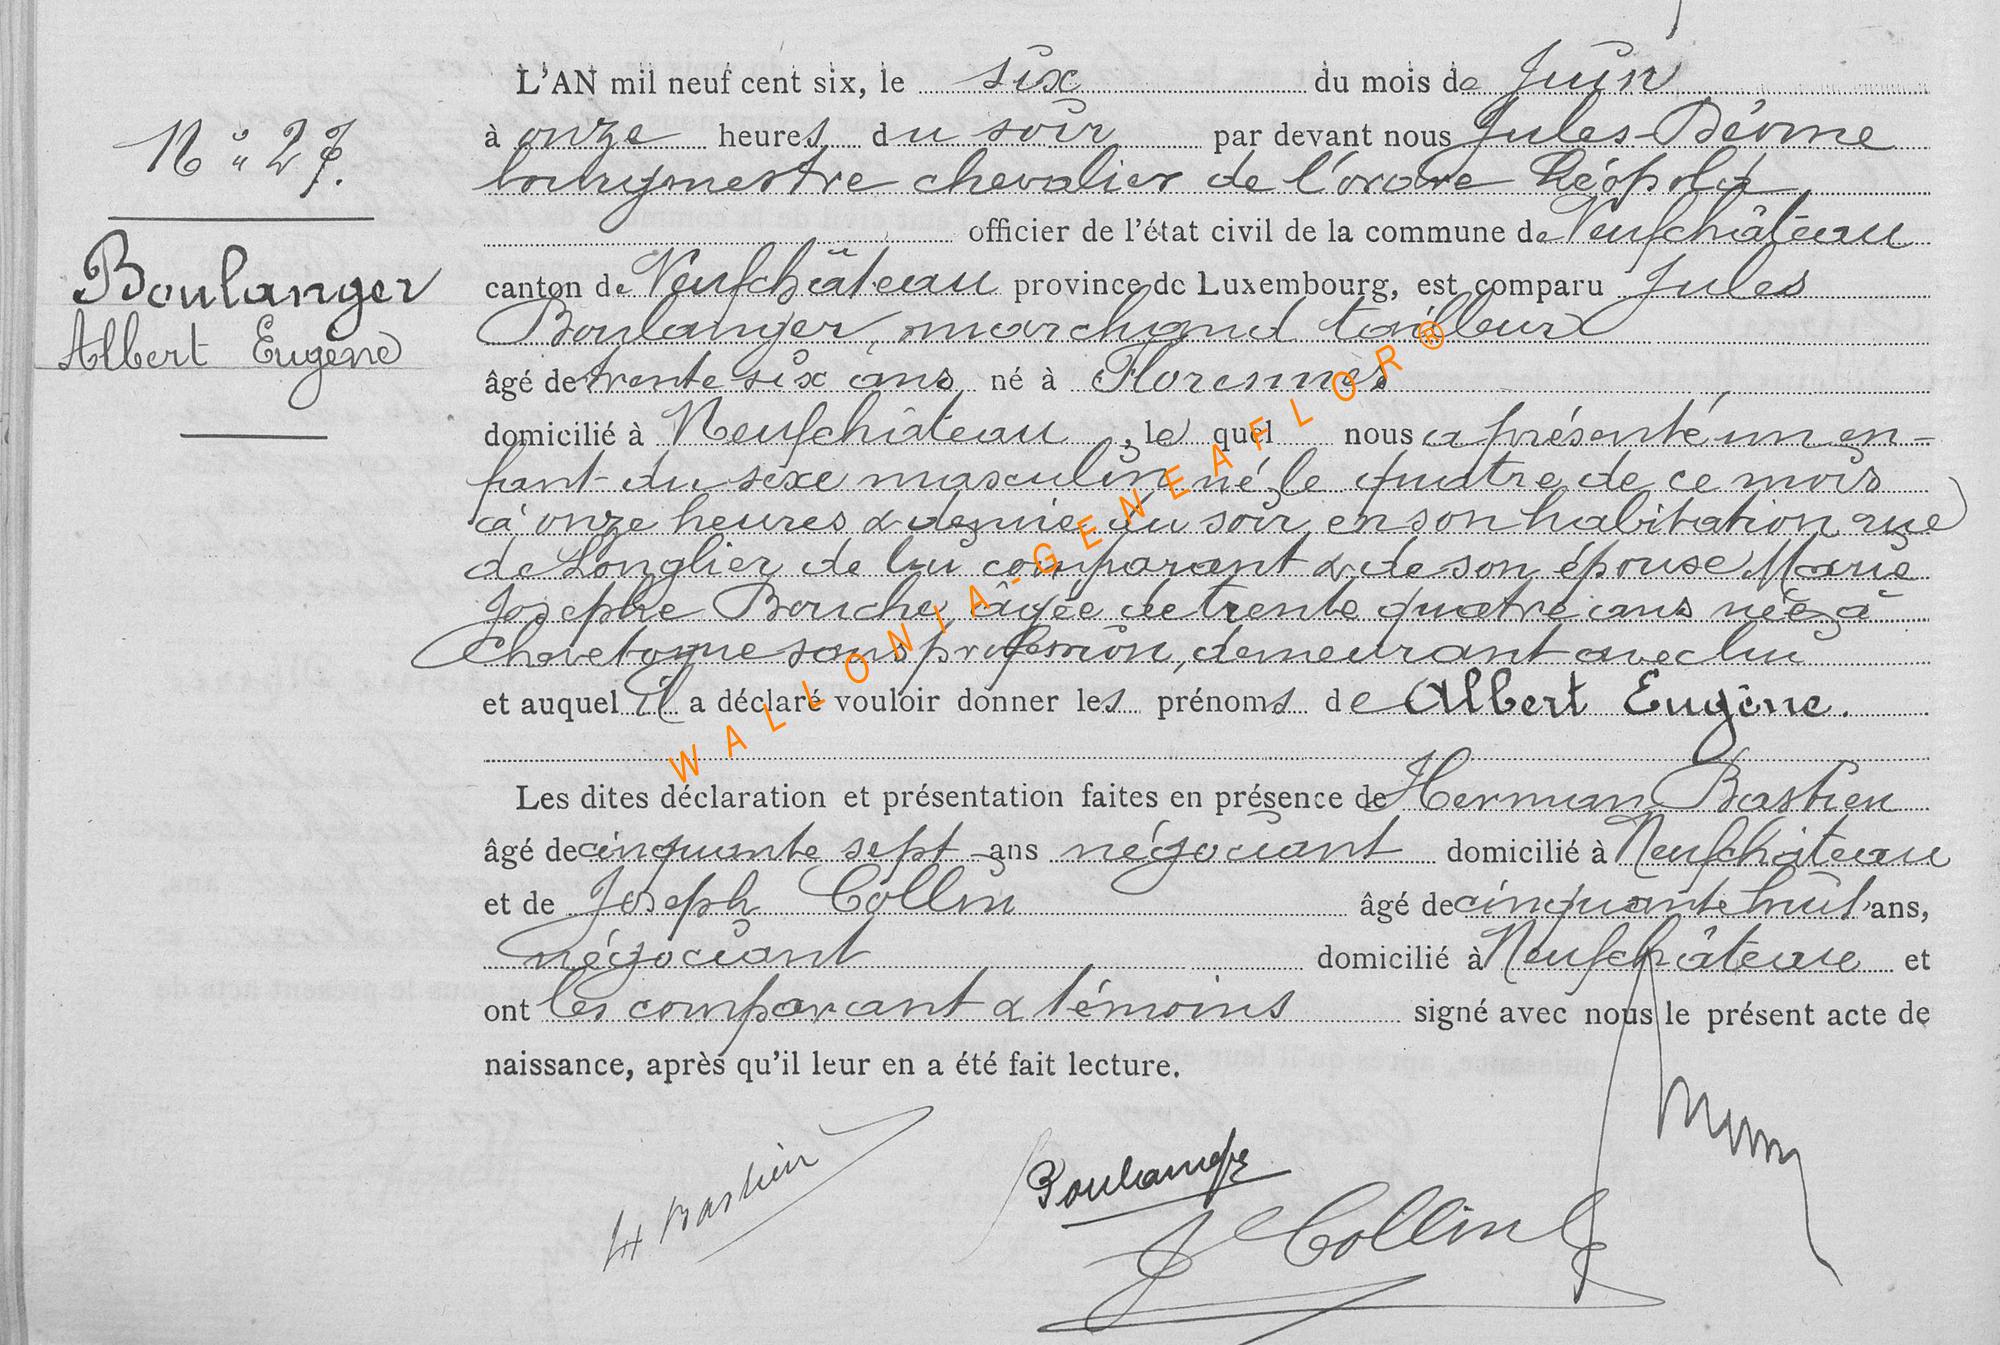 N° 27.
Boulanger
Albert Eugène
L'AN mil neuf cent six, le six du mois de Juin
à onze heures du soir par devant nous Jules Déome
bourgmestre chevalier de l'ordre Léopold,
officier de l'état civil de la commune de Neufchâteau
canton de Neufchâteau province de Luxembourg, est comparu Jules
Boulanger, marchand tailleur
âgé de trente six ans né à Florennes
domicilié à Neufchâteau, le quel nous a présenté un en-
fant du sexe masculin né le quatre de ce mois
à onze heures & demie du soir, en son habitation rue
de Longlier de lui comparant & de son épouse Marie
Josephe Bouche, âgée de trente quatre ans née à
Chevetogne sans profession, demeurant avec lui
et auquel il a déclaré vouloir donner les prénoms de Albert Eugène.
Les dites déclaration et présentation faites en présence de Herman Bastien
âgé de cinquante sept ans négociant domicilié à Neufchâteau
et de Joseph Collin âgé de cinquante huit ans,
négociant domicilié à Neufchâteau et
ont les comparant & témoins signé avec nous le présent acte de
naissance, après qu'il leur en a été fait lecture.
H Bastien
Boulanger
J Collin
WALLONIA-GENEAFLOR®